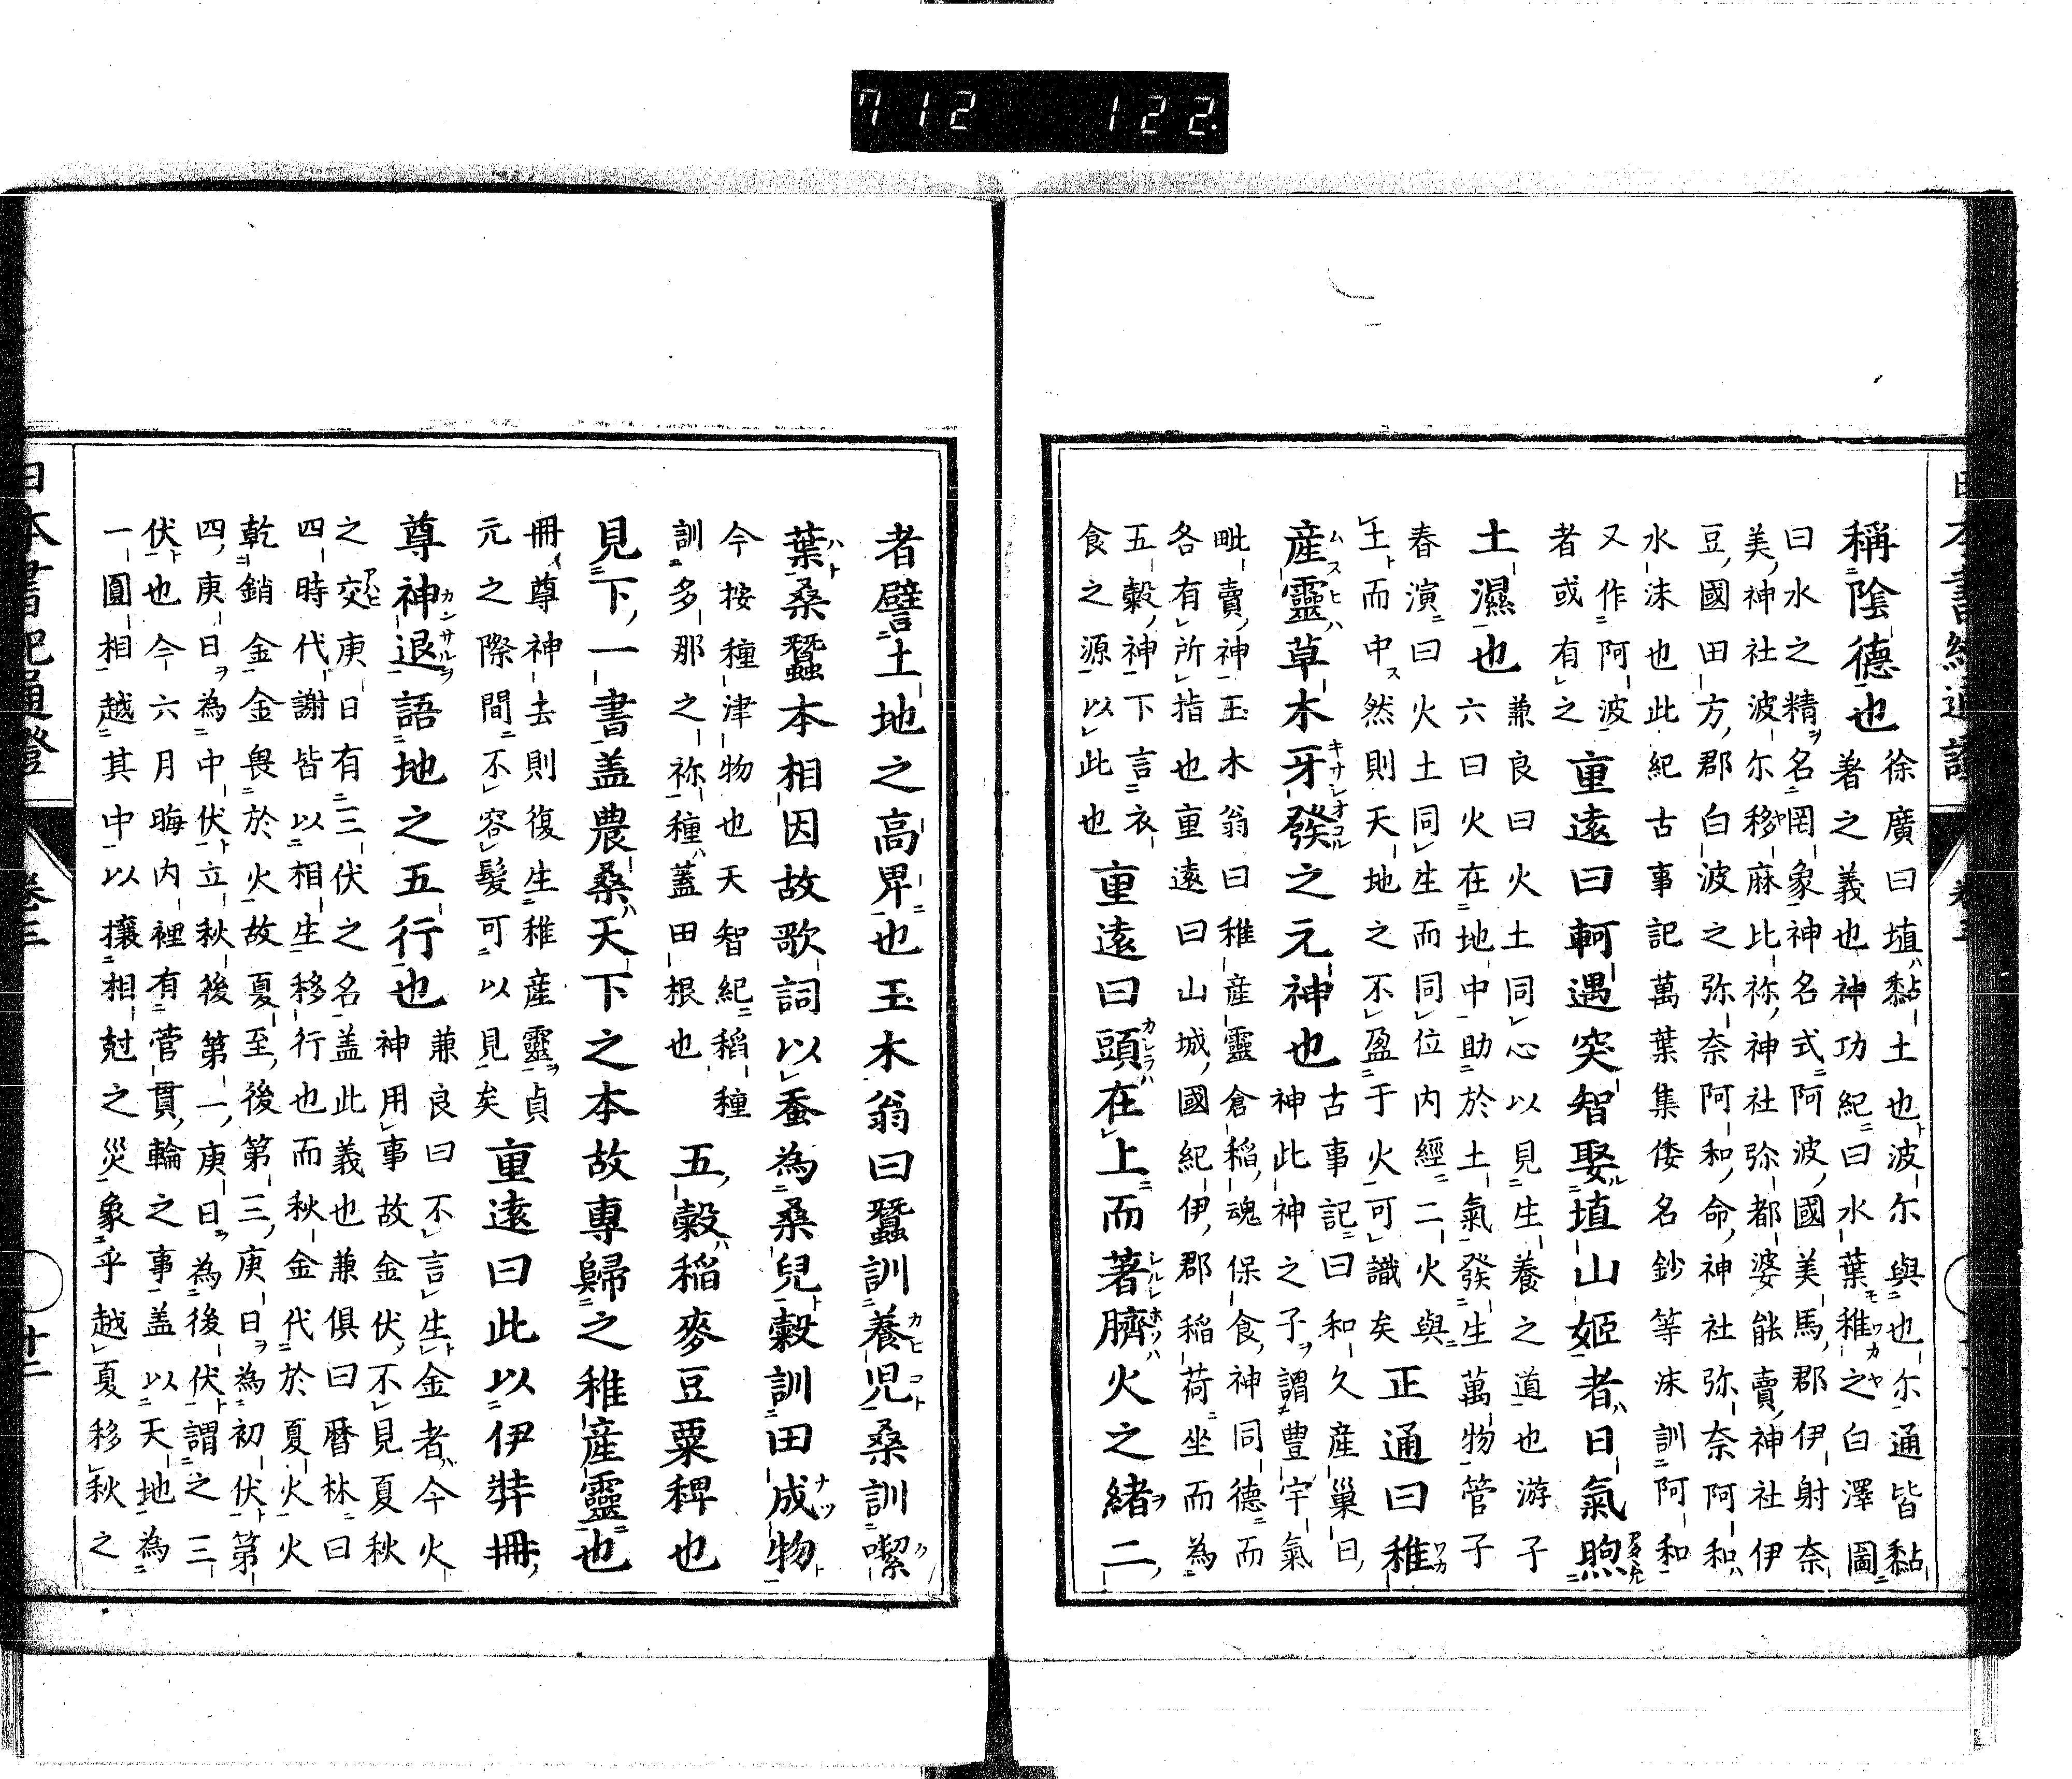 712 122.
稱陰德也
徐廣曰埴黏土也波尓與也尓通皆黏
著之義也神功紀曰水葉稚之白澤圖
曰水之精名罔象神名式阿波國美馬郡伊射奈
美神社波尓移麻比祢神社弥都婆能賣神社伊
豆國田方郡白波之弥奈阿和命神社弥奈阿和
水沫也此紀古事記萬葉集倭名鈔等沫訓阿和
又作阿波
者或有之
重遠曰軻遇突智娶埴山姬者日氣煦
土濕也
兼良曰火土同心以見生養之道也游子
六曰火在地中助於土氣發生萬物管子
春演曰火土同生而同位内經二火與
土而中然則天地之不盈于火可識矣
正通曰稚
産靈草木牙發之元神也
古事記曰和久産巢日
神此神之子謂豊宇氣
毗賣神玉木翁曰稚産靈倉稲魂保食神同德而
各有所指也重遠曰山城國紀伊郡稲荷坐而為
五穀神下言衣
食之源以此也
重遠曰頭在上而著臍火之緒二
者譬土地之高卑也玉木翁曰蠶訓養児桑訓喫
葉桑蠶本相因故歌詞以蚕為桑兒穀訓田成物
今按種津物也天智紀稲種
訓多那之祢種蓋田根也
五穀稲麥豆粟稗也
見下一書盖農桑天下之本故專歸之稚産靈也
冊尊神去則復生稚産靈貞
元之際間不容髮可以見矣
重遠曰此以伊弉冊
尊神退語地之五行也
兼良曰不言生金者今火
神用事故金伏不見夏秋
之交庚日有三伏之名盖此義也兼俱曰曆林曰
四時代謝皆以相生移行也而秋金代於夏火火
乾銷金金畏於火故夏至後第三庚日為初伏第
四庚日為中伏立秋後第一庚日為後伏謂之三
伏也今六月晦内裡有菅貫輪之事盖以天地為
一圓相越其中以攘相尅之災象乎越夏移秋之
日本書紀通證
卷三